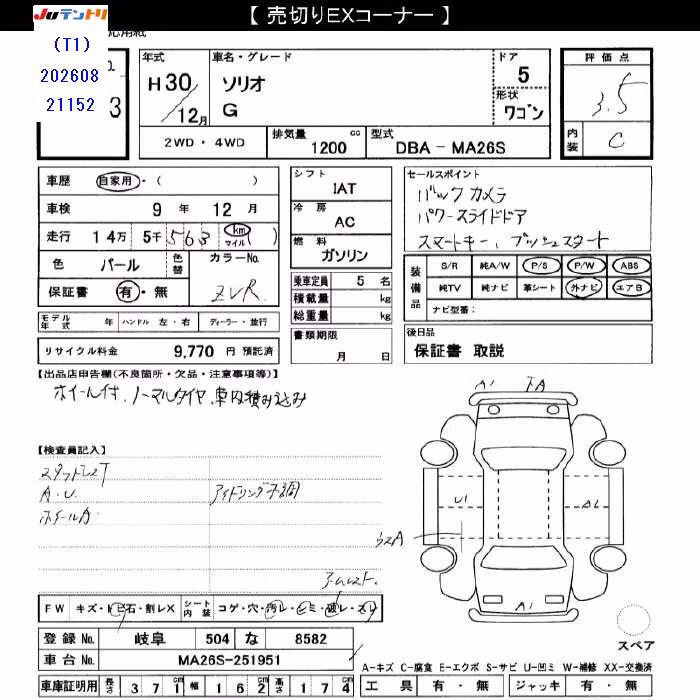 【 売切りEXコーナー 】
JUテントリ
(T1)
202608
21152
応用紙
o.
3
年式
H30
12月
車名・グレード
ソリオ
G
ドア
5
形状
ワゴン
2WD ・ 4WD
排気量
1200 cc
型式
DBA - MA26S
評価点
3.5
内装
C
車歴 自家用・( )
車検 9 年 12 月
走行 14万 5千 563 km マイル ( )
色 パール 色替 カラーNo.
保証書 有・無 ZVR
モデル年式 年 ハンドル 左・右 ディーラー・並行
リサイクル料金 9,770 円 預託済
シフト
IAT
冷房
AC
燃料
ガソリン
乗車定員 5 名
積載量 kg
総重量 kg
書類期限
月 日
セールスポイント
バックカメラ
パワースライドドア
スマートキー、プッシュスタート
装備品
S/R 純A/W P/S P/W ABS
純TV 純ナビ 革シート 外ナビ エアB
ナビ型番:
後日品
保証書 取説
【出品店申告欄(不良箇所・欠品・注意事項等)】
ホイール付、ノーマルタイヤ、車内積み込み
【検査員記入】
スタッドレス
A.U.
ホイールA
アイドリング不調
アームレスト
FW キズ・トビ石・割レX シート内装 コゲ・穴・汚レ・シミ・破レ・スリ
登録No. 岐阜 504 な 8582
車台No. MA26S-251951
車庫証明用 長さ 371 cm 幅 162 cm 高さ 174 cm
A1
U1
A2
A1
スペア
A-キズ C-腐食 E-エクボ S-サビ U-凹ミ W-補修 XX-交換済
工具 有・無 ジャッキ 有・無